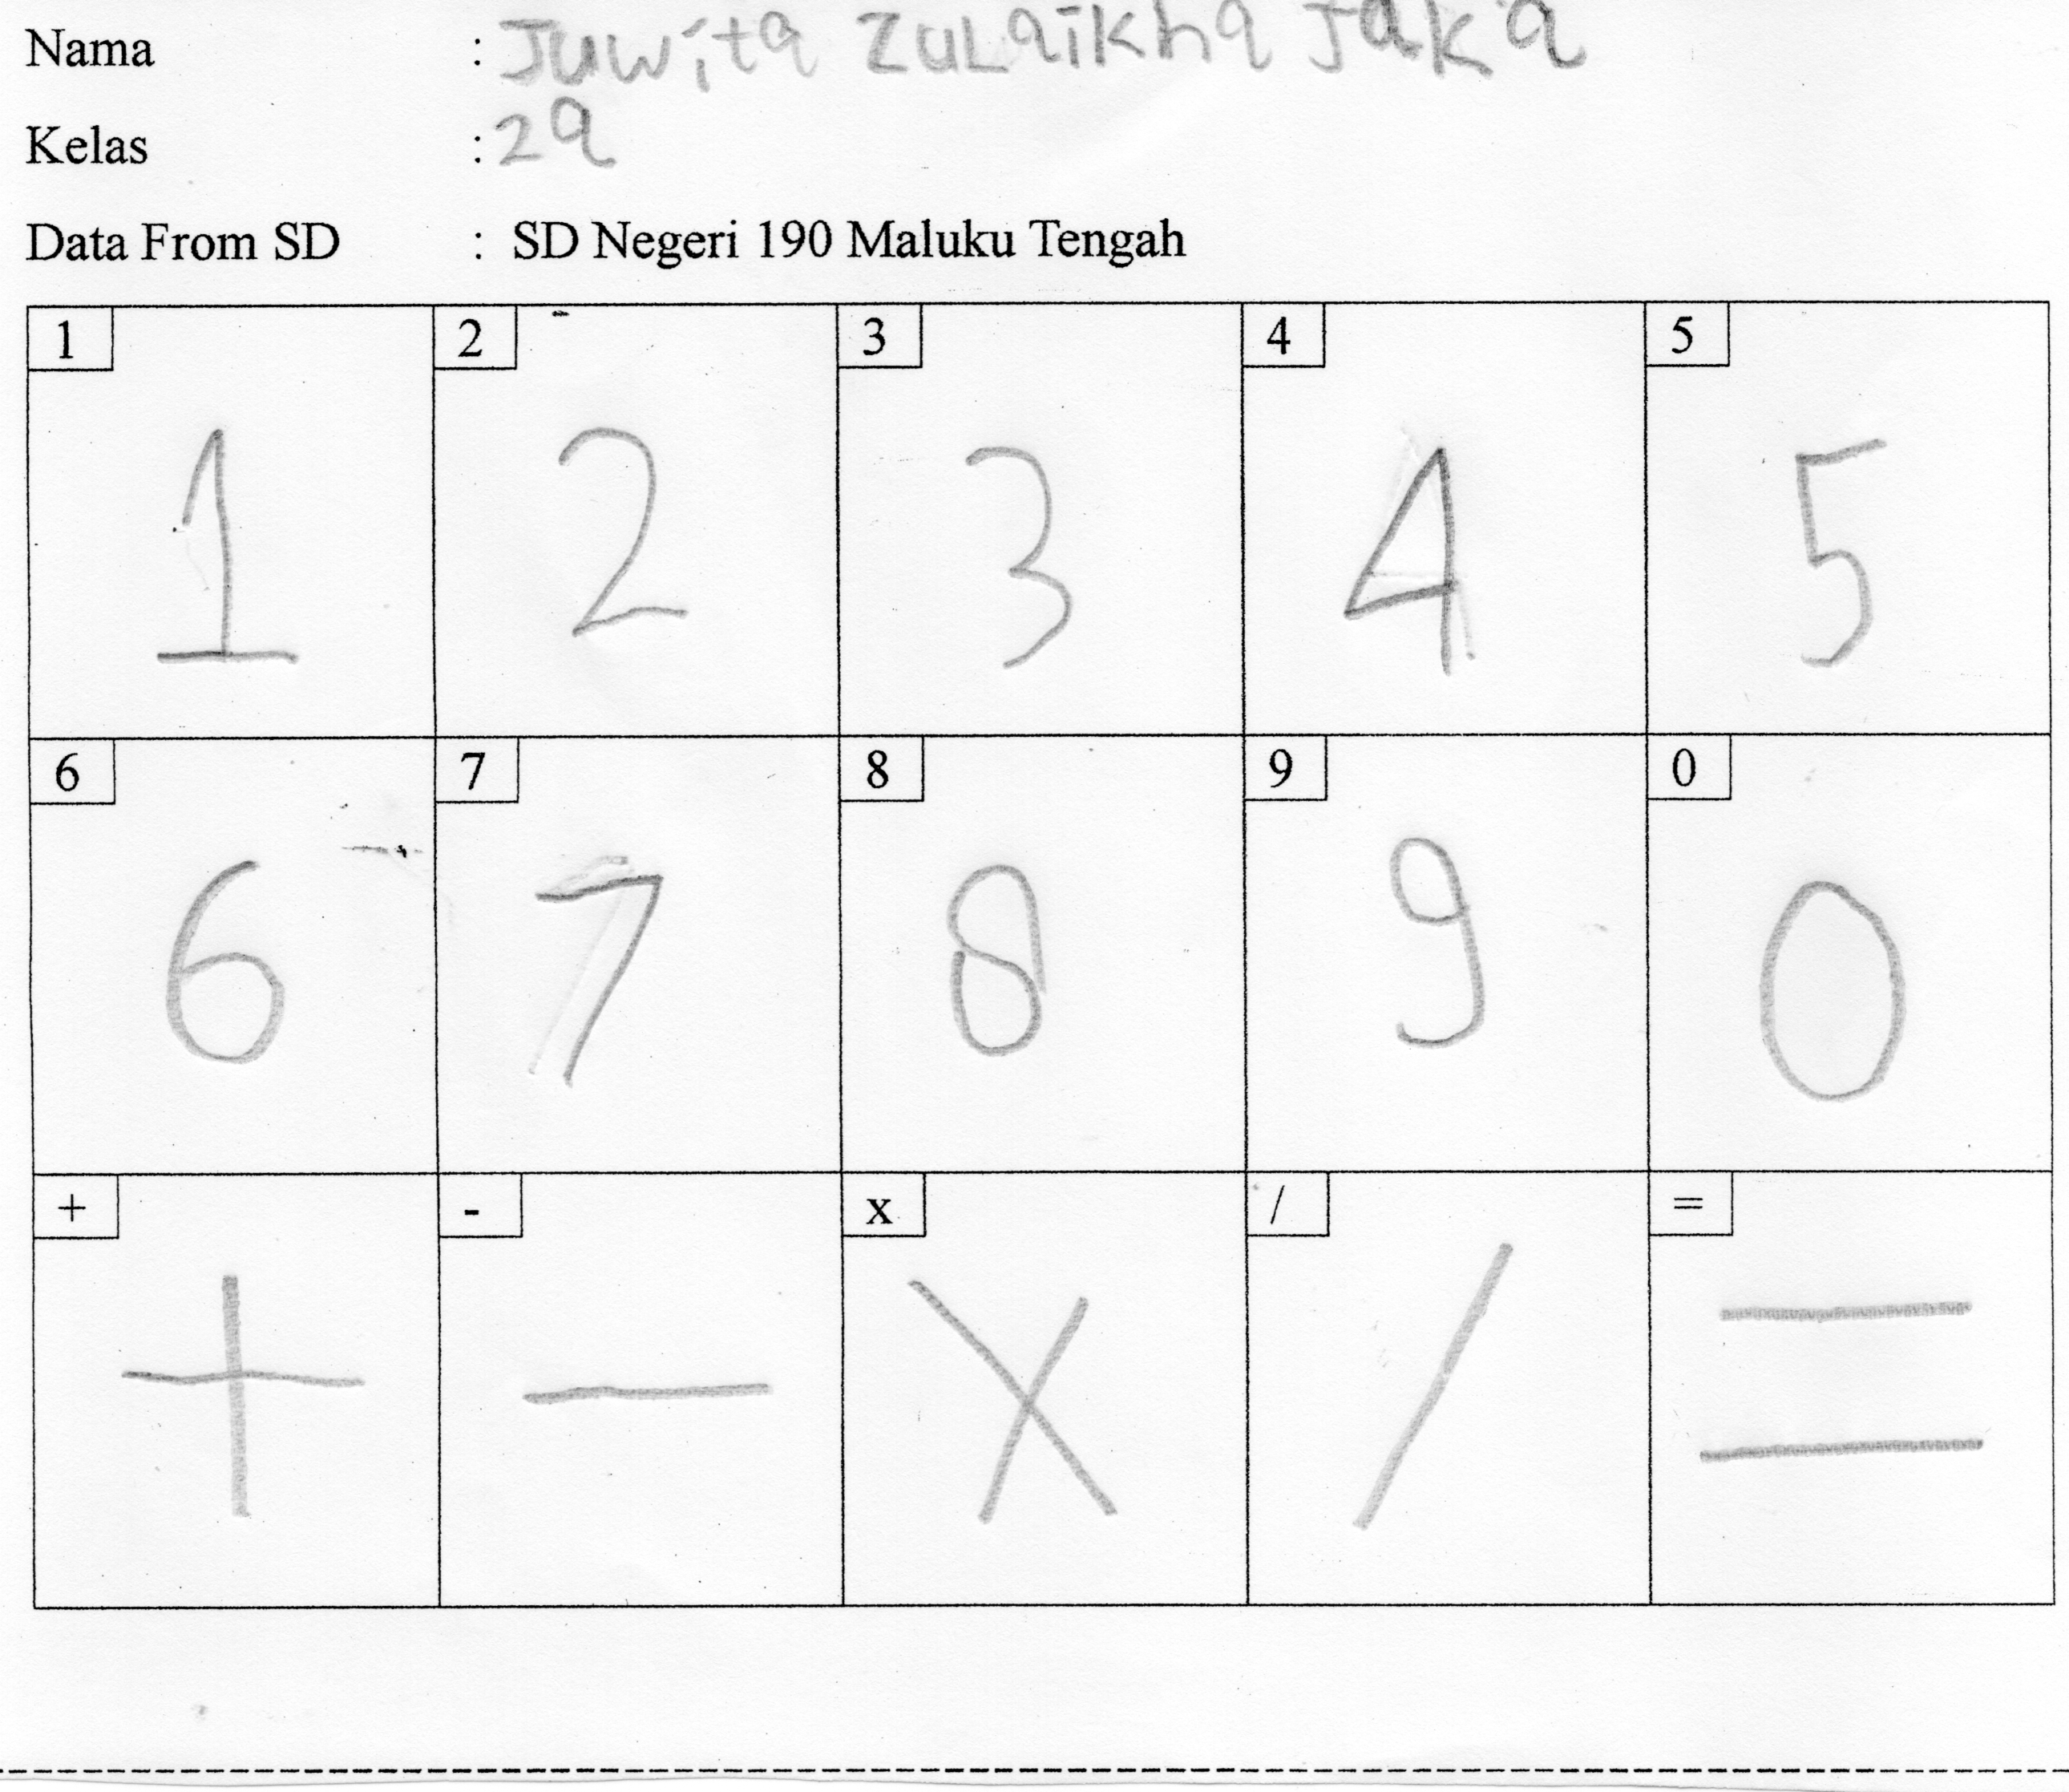 Nama : Juwita Zulaikha Jaka
Kelas : 2a
Data From SD : SD Negeri 190 Maluku Tengah
1 2 3 4 5
1 2 3 4 5
6 7 8 9 0
6 7 8 9 0
+ - x / =
+ - x / =